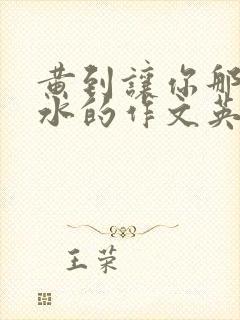 黄到讓你那
水的作文英
王荣